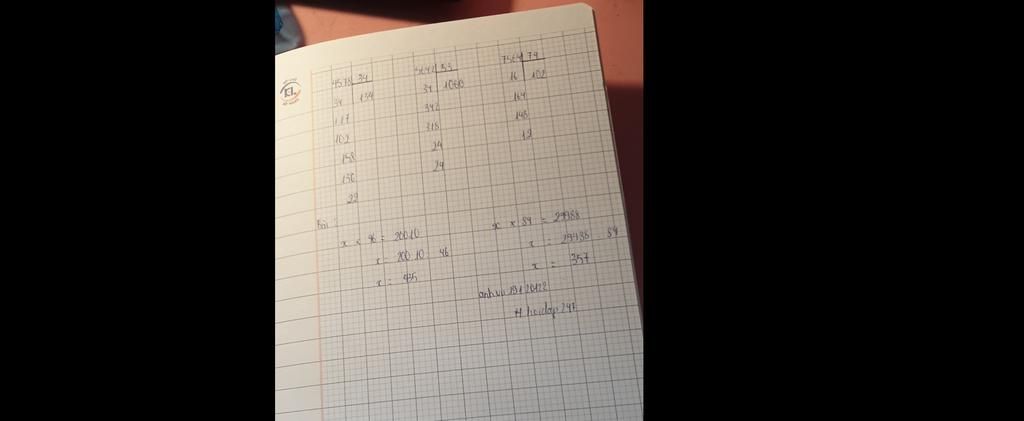 4578 34
34 134
117
102
158
136
22
5642 53
34 1060
342
318
24
24
7564 74
16 102
164
148
12
Bài :
x × 46 = 20010
x = 20010 46
x = 435
x × 84 = 29988
x = 29988 84
x = 357
anhvu13120122
# hoidap247